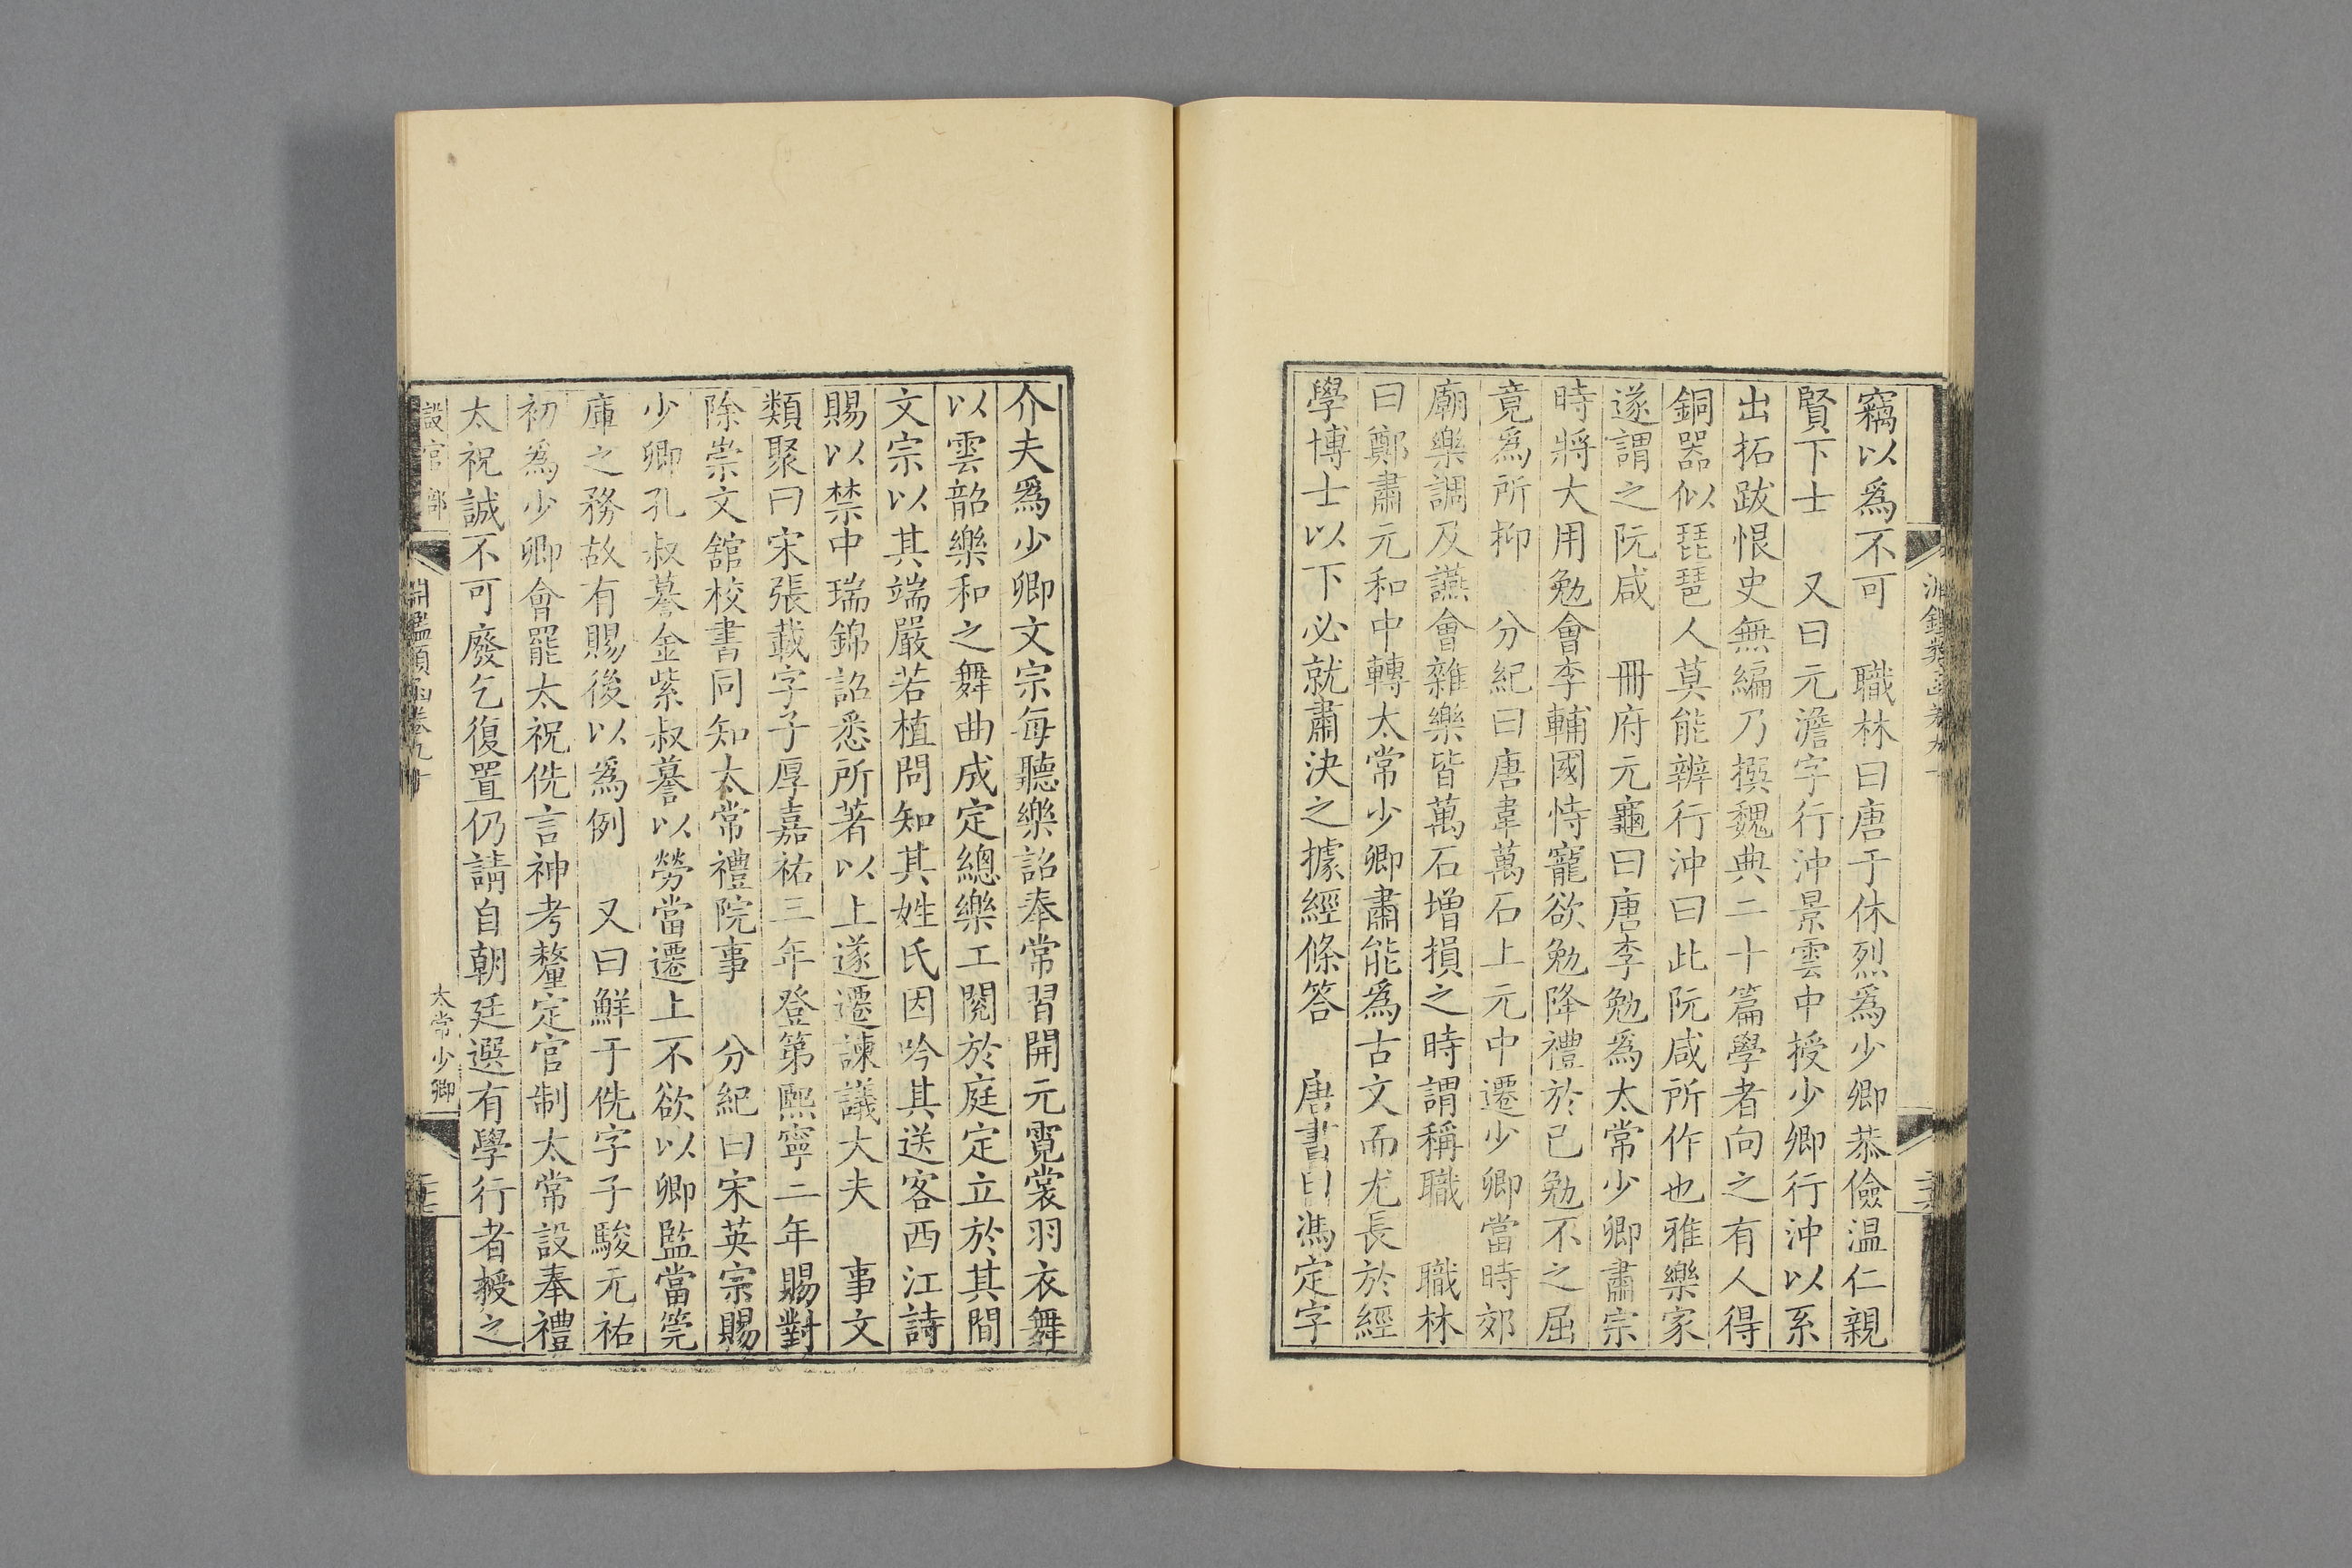 竊以爲不可　職林曰唐于休烈爲少卿恭儉温仁親
賢下士　又曰元澹字行沖景雲中授少卿行沖以系
出拓跋恨史無編乃撰魏典二十篇學者向之有人得
銅器似琵琶人莫能辨行沖曰此阮咸所作也雅樂家
遂謂之阮咸　冊府元龜曰唐李勉爲太常少卿肅宗
時將大用勉會李輔國恃寵欲勉降禮於已勉不之屈
竟爲所抑　分紀曰唐韋萬石上元中遷少卿當時郊
廟樂調及讌會雜樂皆萬石增損之時謂稱職　職林
曰鄭肅元和中轉太常少卿肅能爲古文而尤長於經
學博士以下必就肅決之據經條答　唐書曰馮定字
介夫爲少卿文宗每聽樂詔奉常習開元霓裳羽衣舞
以雲韶樂和之舞曲成定總樂工閱於庭定立於其間
文宗以其端嚴若植問知其姓氏因吟其送客西江詩
賜以禁中瑞錦詔悉所著以上遂遷諫議大夫　事文
類聚曰宋張載字子厚嘉祐三年登第熙寧二年賜對
除崇文舘校書同知太常禮院事　分紀曰宋英宗賜
少卿孔叔蕃金紫叔蕃以勞當遷上不欲以卿監當筦
庫之務故有賜後以為例　又曰鮮于侁字子駿元祐
初爲少卿會罷太祝侁言神考釐定官制太常設奉禮
太祝誠不可廢乞復置仍請自朝廷選有學行者授之
設官部
淵鑑類函卷九十
太常少卿